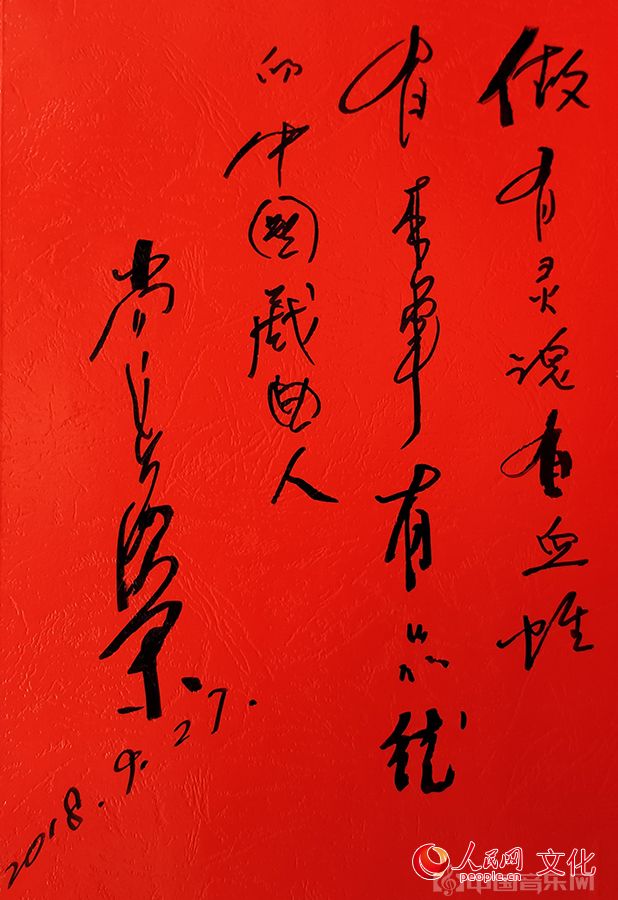 做有灵魂有血性
有本事有品德
的中國戏曲人
尚长荣
2018.9.27.
人民网 文化
people.cn
中国音乐网